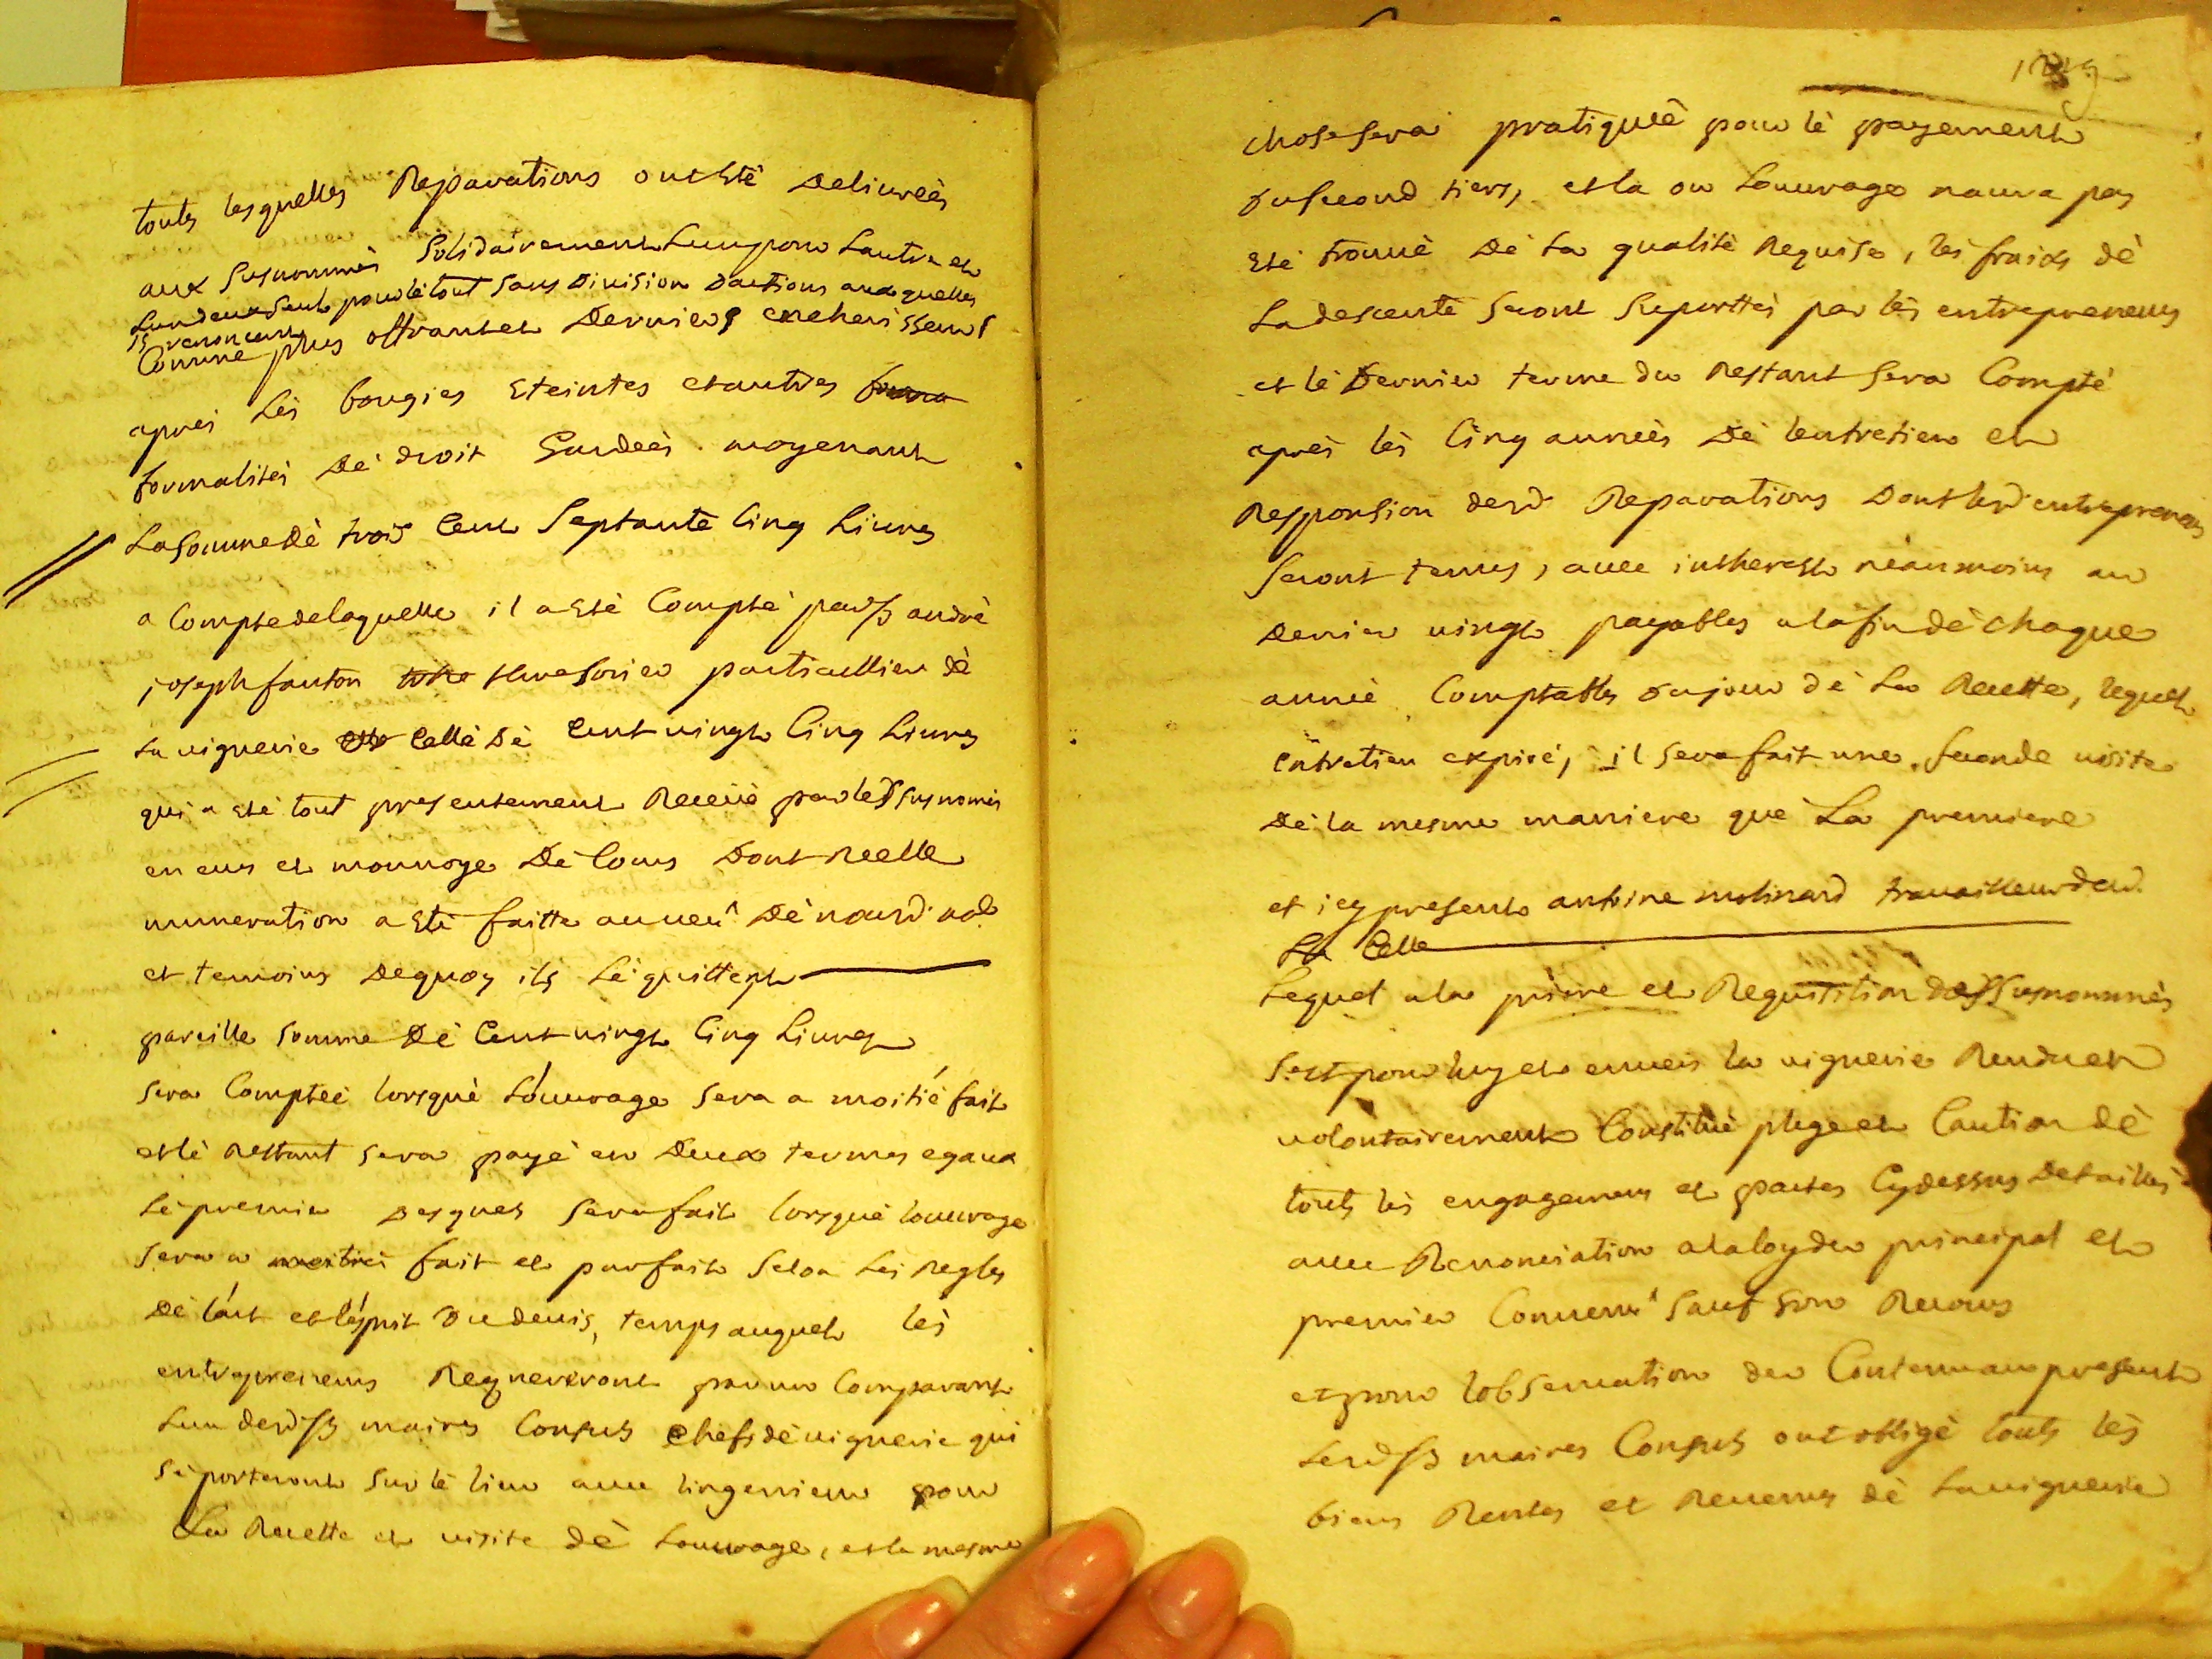 touts lesquelles Reparations ont esté delivreès
aux susnommès solidairement lun pour Lautre et
Lun deux seul pour lè tout sans division dactions auxquelles
ils renoncent
Comme plus offrants et derniers encherisseurs
aprés Lès bougies eteintes et autres
formalitès dè droit Gardeès moyenant
La somme dè trois Cent septante Cinq Livres
a Compte de laquelle il a estè Comptè par sr andrè
joseph fanton thresorier particullier dè
La viguerie Cellè dè Cent vingt Cinq Livres
qui a estè tout presentement Receüe par lesd susnomès
en ecus et monnoye dè Cours dont reelle
numeration a estè faitte au veu dè nousd. not.
et temoins de quoy ils Lè quittent
pareille somme dè Cent vingt Cinq Livres
sera Compteè lorsquè Louvrage sera a moitiè fait
et lè restant sera payè en deux termes egaux
Lè premier desquels sera fait lorsquè louvrage
sera a moitiè fait et parfait selon Lès regles
dè lart et lésprit du devis, temps auquel lès
entrepreneurs Requereront par un Comparant
Lun desd. srs maires Consuls chefs dè viguerie qui
sè porteront sur lè lieu avec lingenieur pour
La Recette et visite dè Louvrage, et la mesme
chose sera pratiqueè pour lè payement
du second tiers, et la ou Louvrage naura pas
estè trouvè dè La qualitè requise, lès fraix dè
La descente seront suporttès par lès entrepreneurs
et lè dernier terme du restant sera Comptè
aprés lès Cinq anneès dè lentretien et
Responsion desd. Reparations dont lesd. entrepreneurs
seront tenus, avec inthérest nèanmoins au
denier vingt payables a la fin dè chaque
anneè Comptables du jour dè La Recette, lequel
entretien expirè, il sera fait une seconde visite
dè la mesme maniere què La premiere
et icy present antoine molinard travailleur dud.
La Celle
Lequel a la prière et Requisition desd susnommès
sest pour luy et envers la viguerie Rendu et
volontairement Constituè plege et Caution dè
touts lès engagemens et pactes Cy dessus detaillès
avec Renonciation a la loy du principal et
premier Convenu sauf son Recours
et pour lobservation du Contenu au present
Lesd. srs maires Consuls ont obligè touts lès
biens Rentes et Revenus dè La viguerie